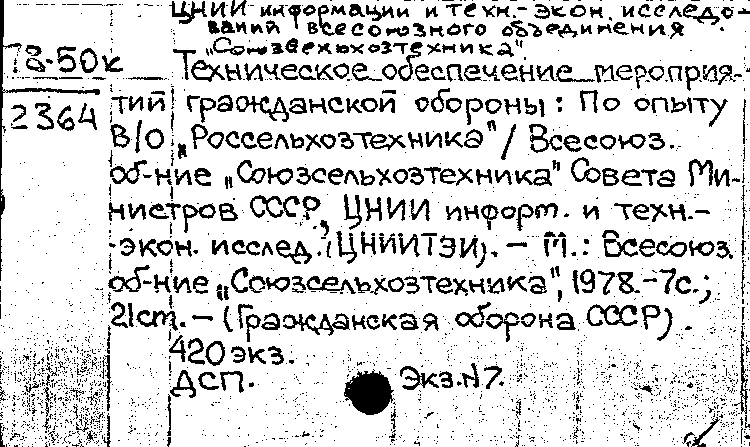 ЦНИИ информации и техн.-экон. исследо-
ваний всесоюзного объединения
"Союзсельхозтехника"
78-50к
2364
Техническое обеспечение мероприя-
тий гражданской обороны: По опыту
В/О "Россельхозтехника" / Всесоюз.
об-ние "Союзсельхозтехника" Совета Ми-
нистров СССР, ЦНИИ информ. и техн.-
-экон. исслед. (ЦНИИТЭИ). – М.: Всесоюз.
об-ние "Союзсельхозтехника", 1978.-7с.;
21cm. – (Гражданская оборона СССР).
420 экз.
ДСП. Экз.N7.